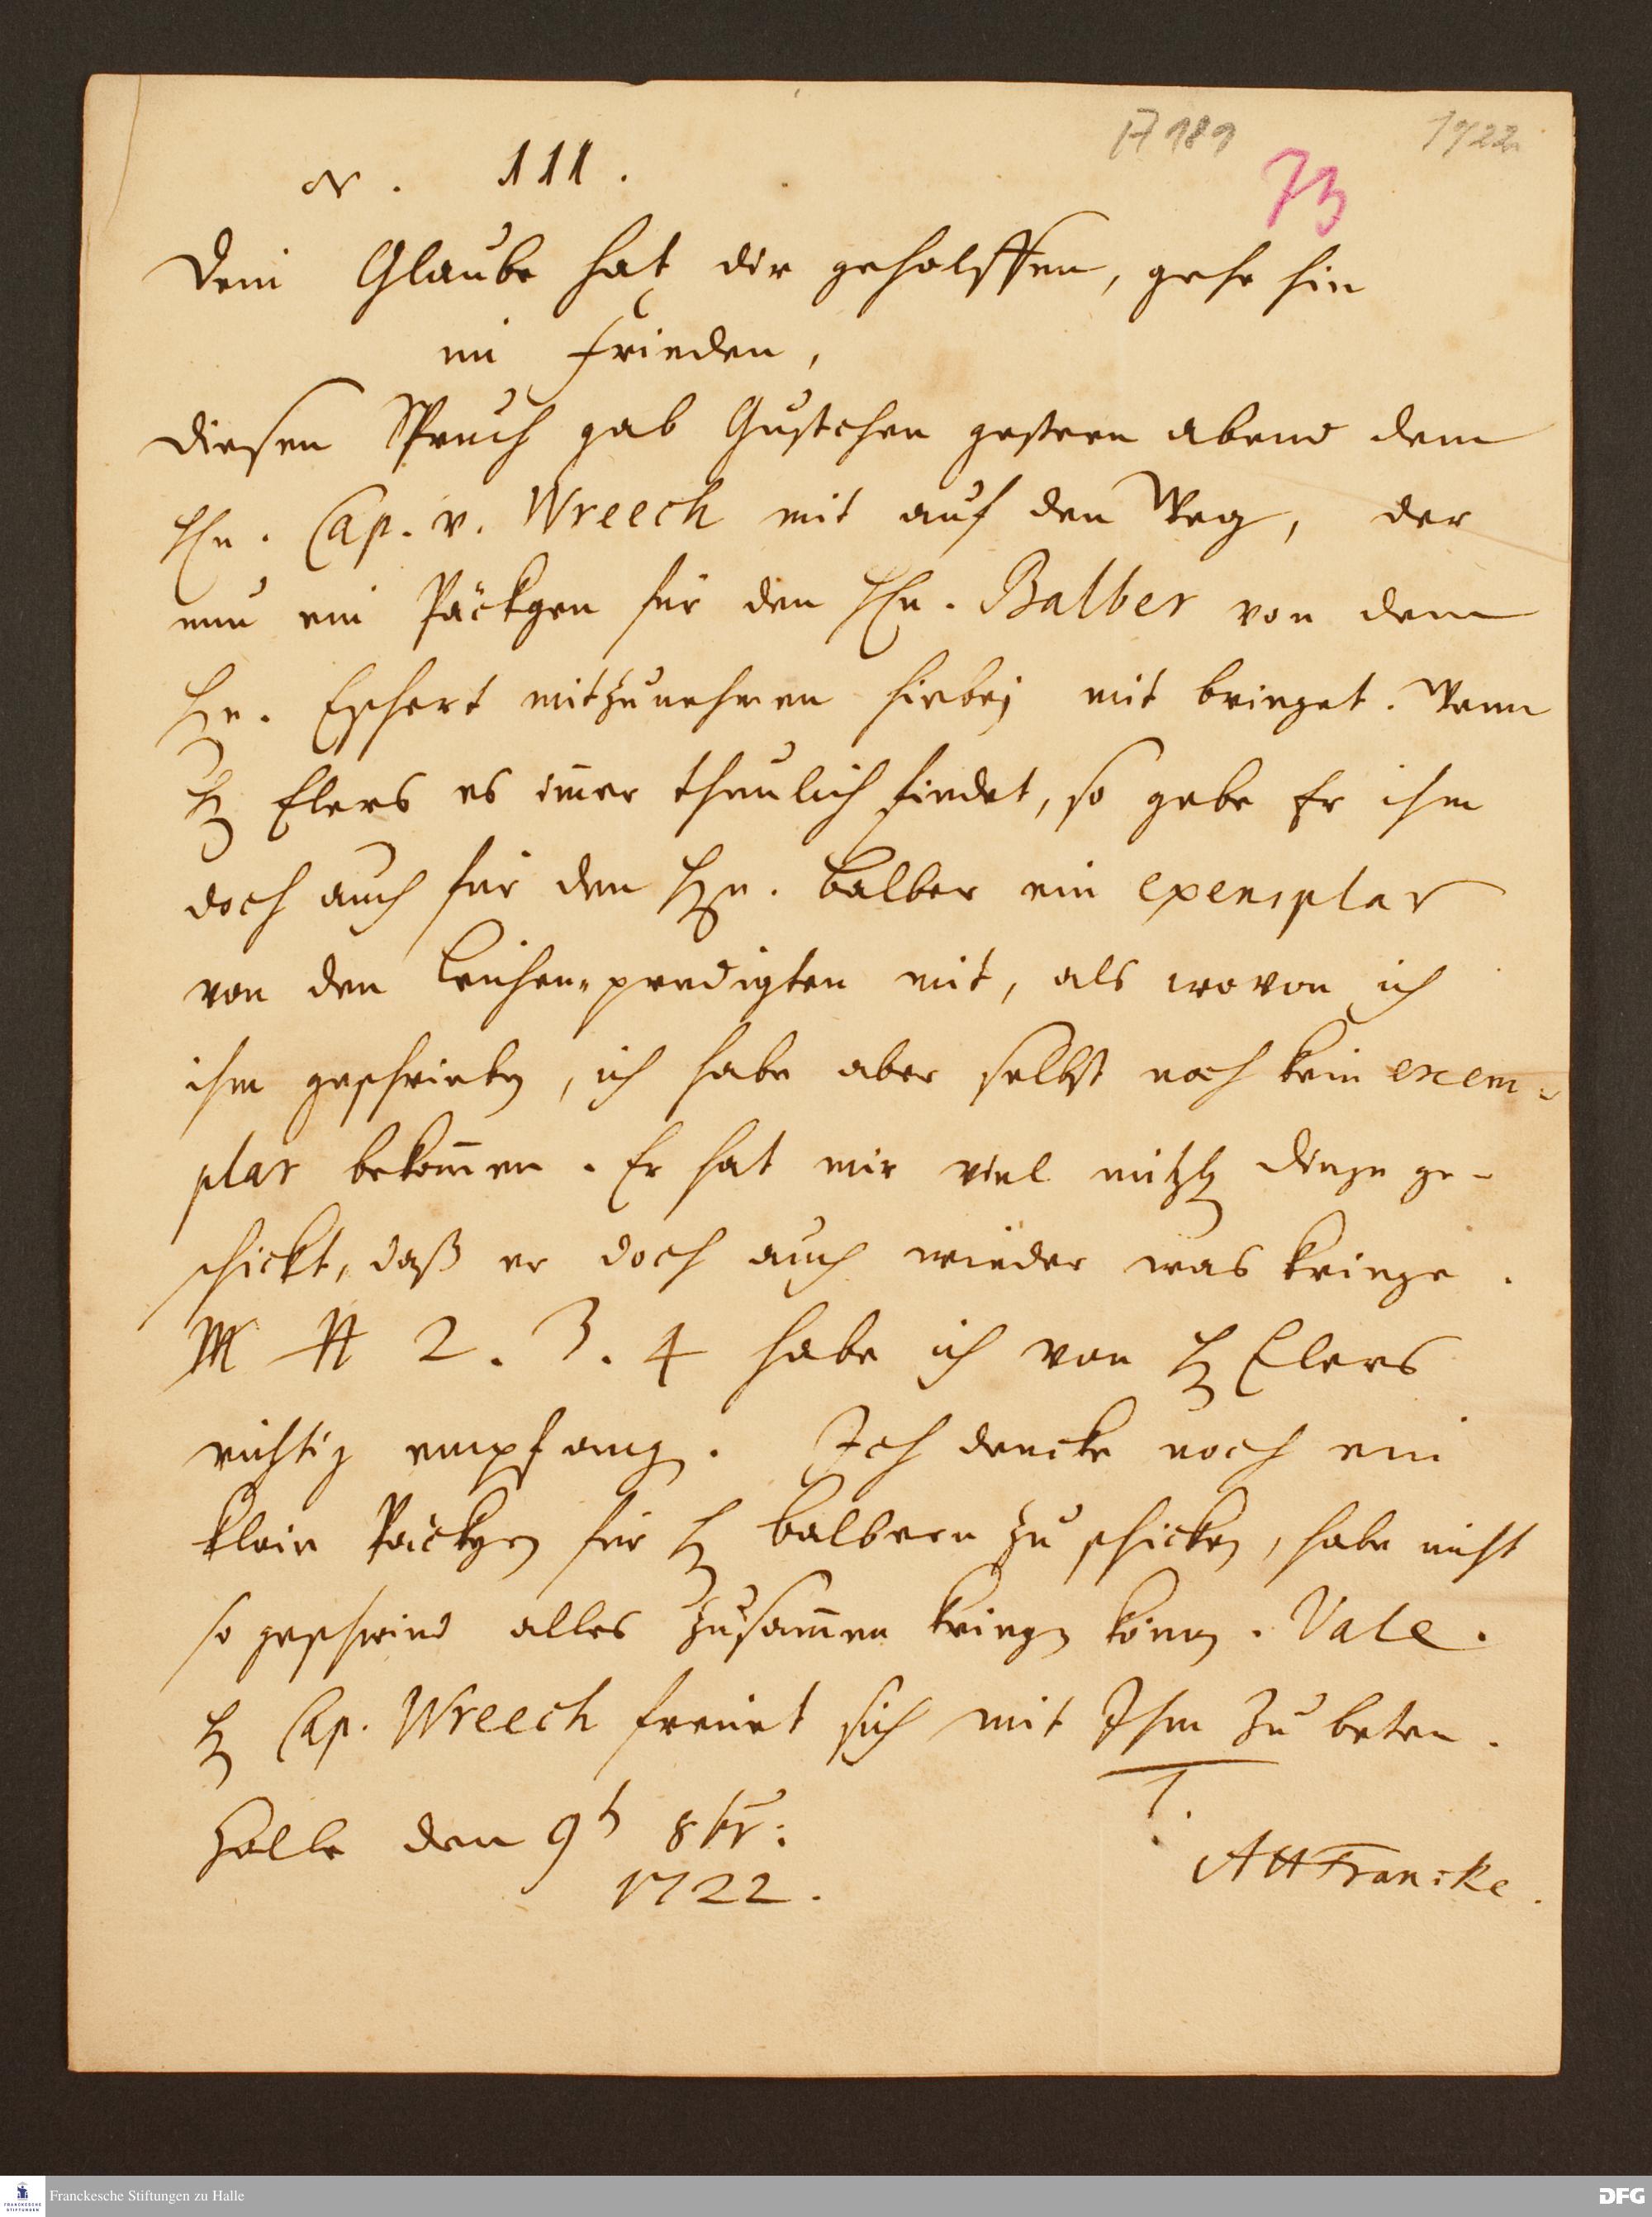 A 189 1722
73
N. 111.
Dein Glaube hat dir geholffen, gehe hin
im Frieden,
diesen Spruch gab Gustchen gestern abend dem
Hn. Cap. v. Wreech mit auf den Weg, der
nun ein Päckgen für den Hn. Balber von dem
Hn. Ephert mitzunehmen hierbey mit bringet. Wenn
H Elers es im̄er thunlich findet, so gebe Er ihm
doch auch für den Hn. Balber ein exemplar
von den Leichen-predigten mit, als wovon ich
ihm geschrieben, ich habe aber selbst noch kein exem-
plar bekom̄en. Er hat mir viel nützl Dinge ge-
schickt, daß er doch auch wieder was kriege.
2. 3. 4 habe ich von H Elers
richtig empfang. Ich dencke noch ein
klein Päckgen für H Balbern zu schicken, habe nicht
so geschwind alles zusam̄en kriegen können. Vale.
H Cap. Wreech freuet sich mit Ihm zu beten.
Halle den 9t 8br:
1722.
T.
AHFrancke.
Franckesche Stiftungen zu Halle
DFG